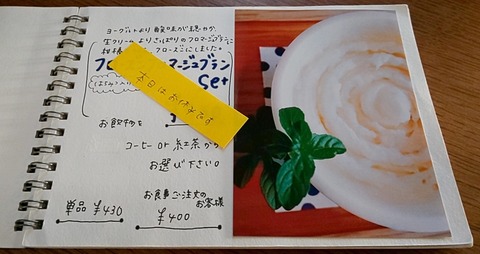 ヨーグルトより酸味が穏やか
生クリームよりさっぱりのフロマージュブランに
フローズンにしました。
フロ マージュブラン
Set
本日はお休みです
お飲物を
コーヒー or 紅茶から
お選び下さい。
お食事ご注文の
お客様
単品 ¥430
¥400